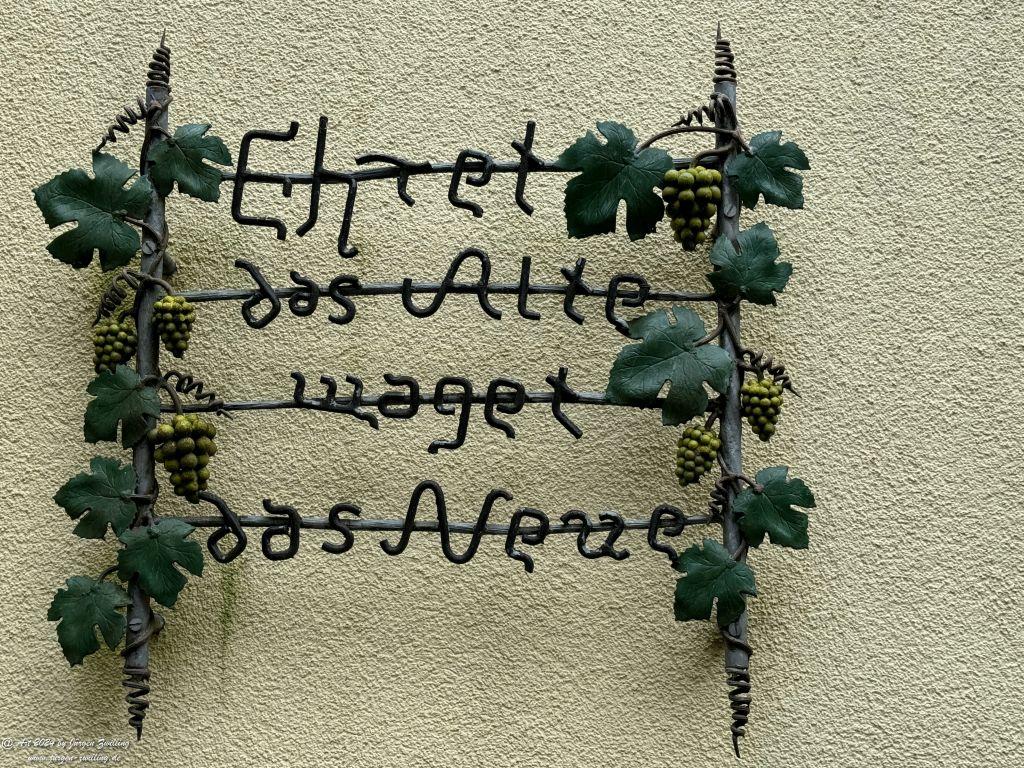 Ehret
das Alte
waget
das Neue
© Art 2024 by Jürgen Zwilling
www.jurgen-zwilling.de